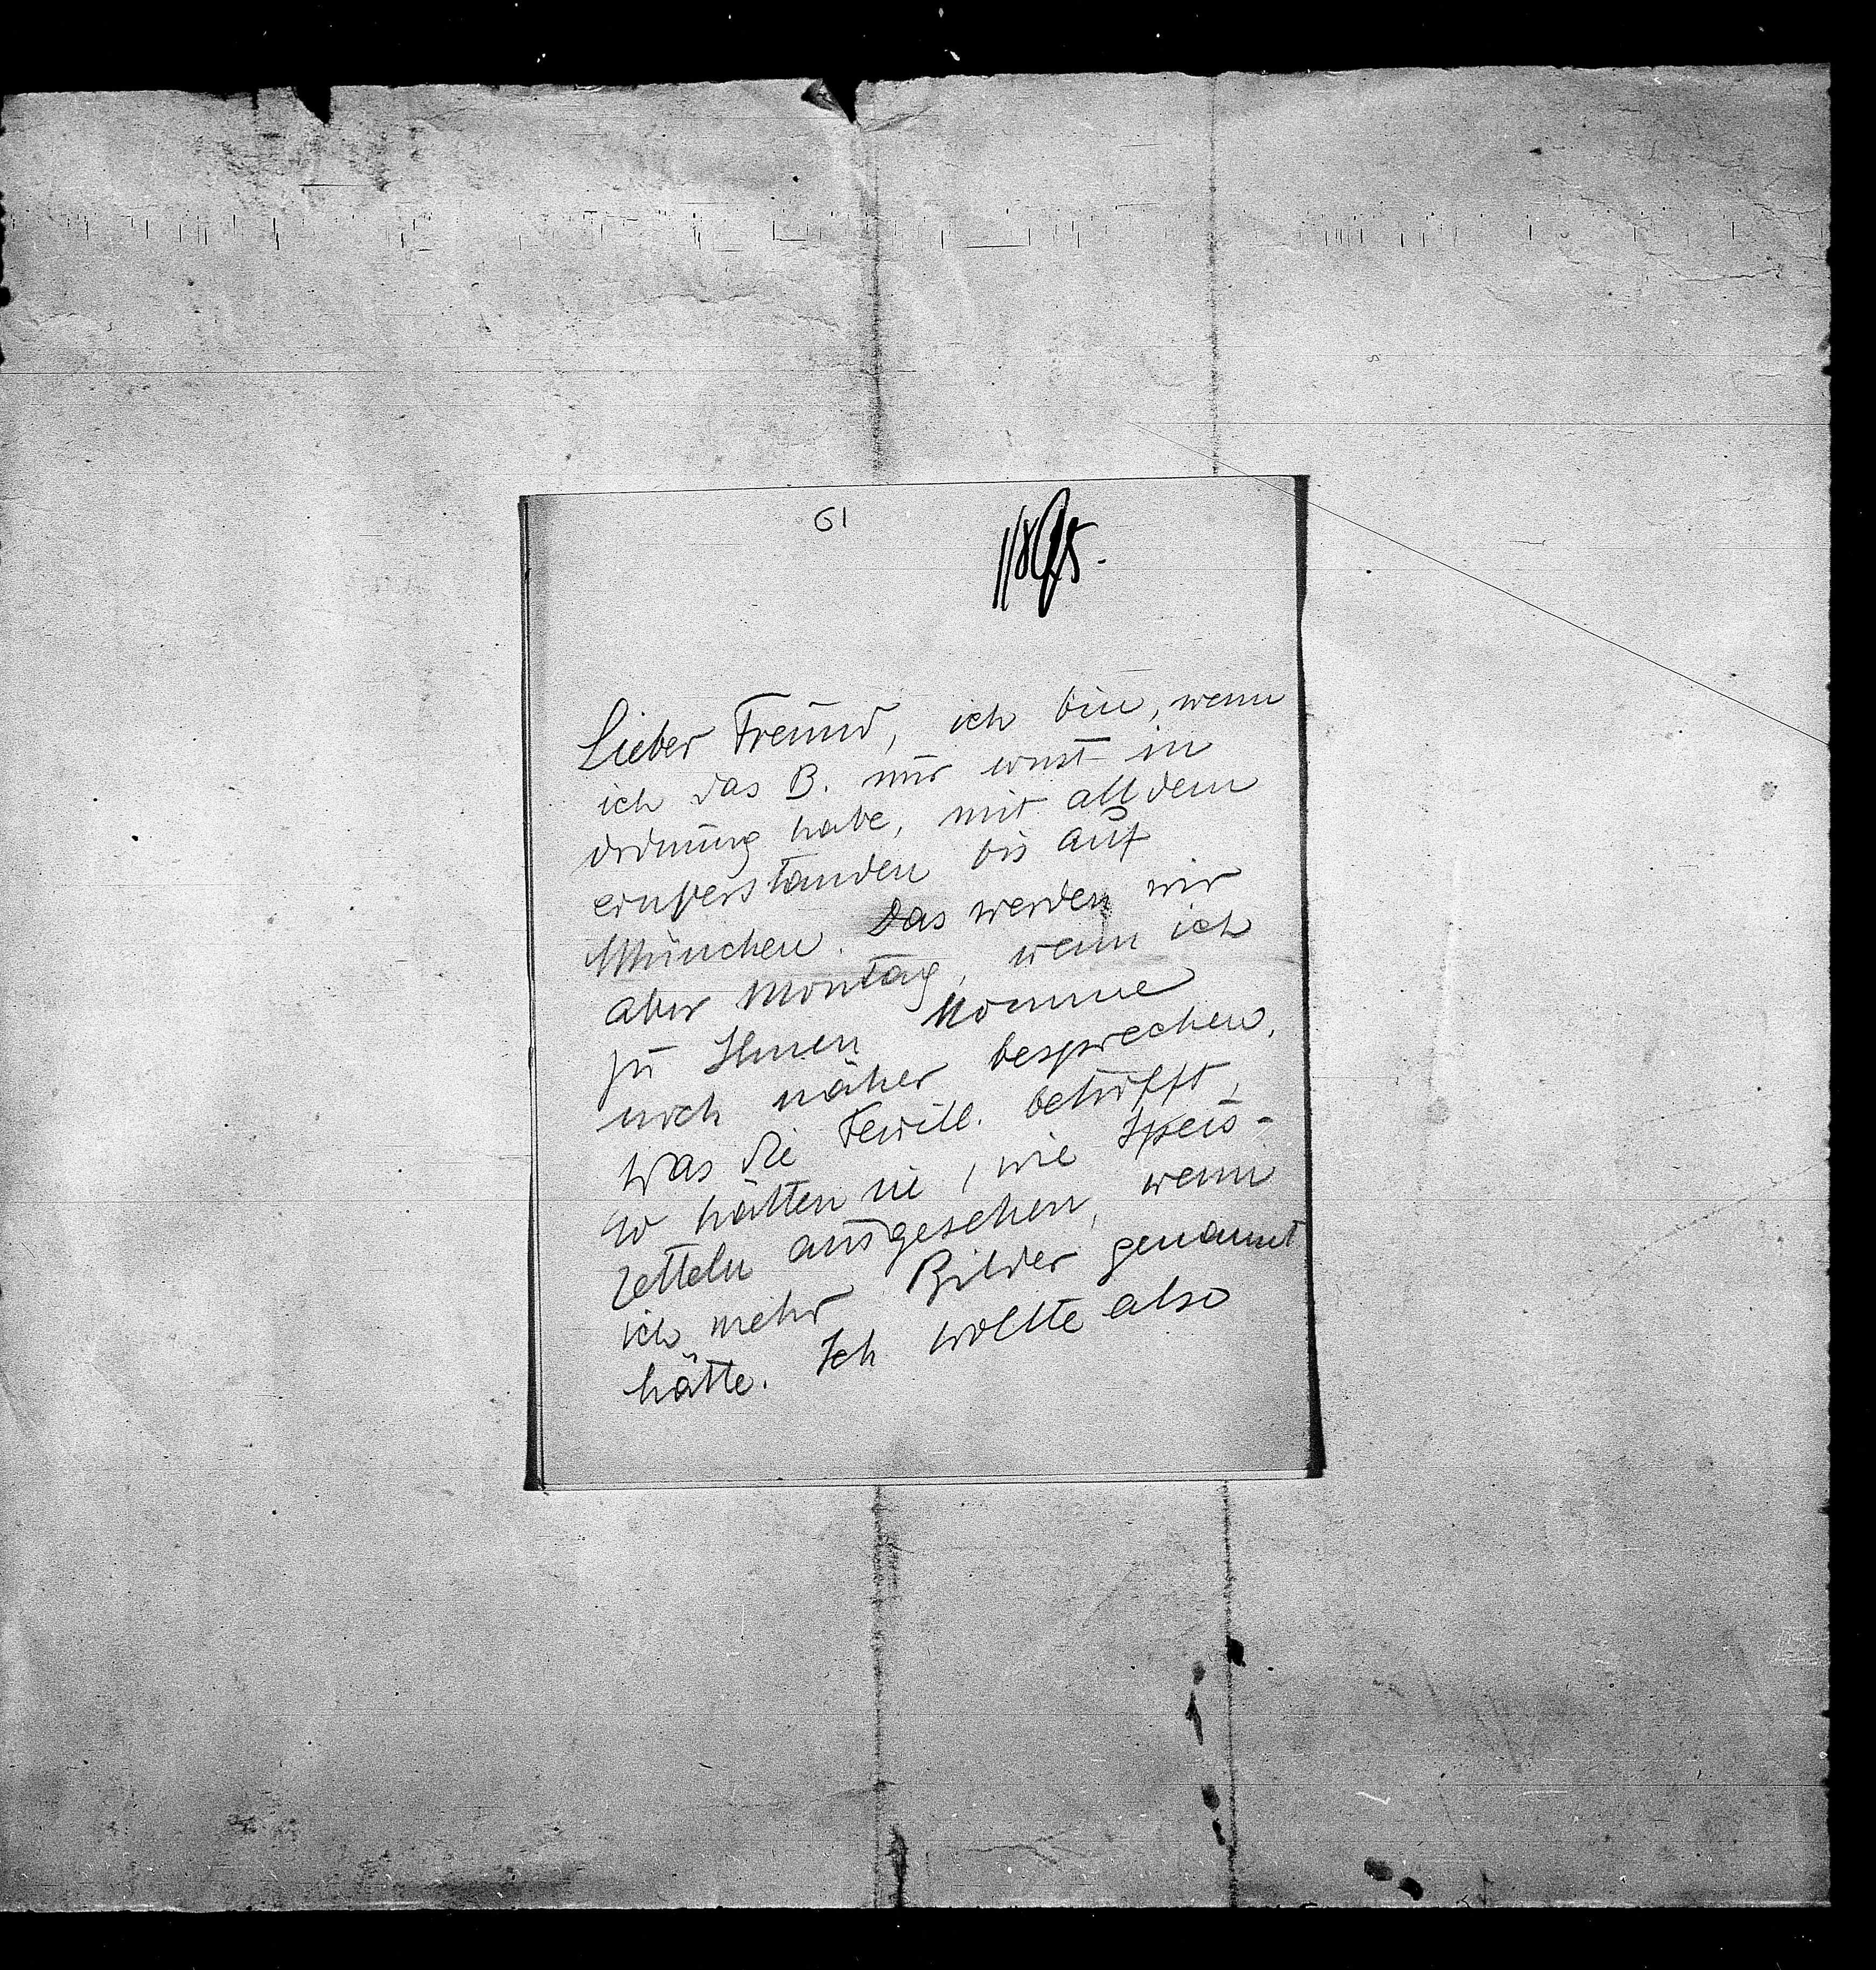 61
Lieber Freund, ich bin, wenn
ich das B. nur erust in
ordnung habe, mit alldem
einverstanden bis auf
München. Das werden wir
aber Montag, wenn ich
zu Ihnen komme
noch näher besprechen.
Was die Feuill. betrifft,
so hätten sie, wie Speis-
zetteln ausgesehen, wenn
ich mehr Bilder genannt
hätte. Ich wollte also